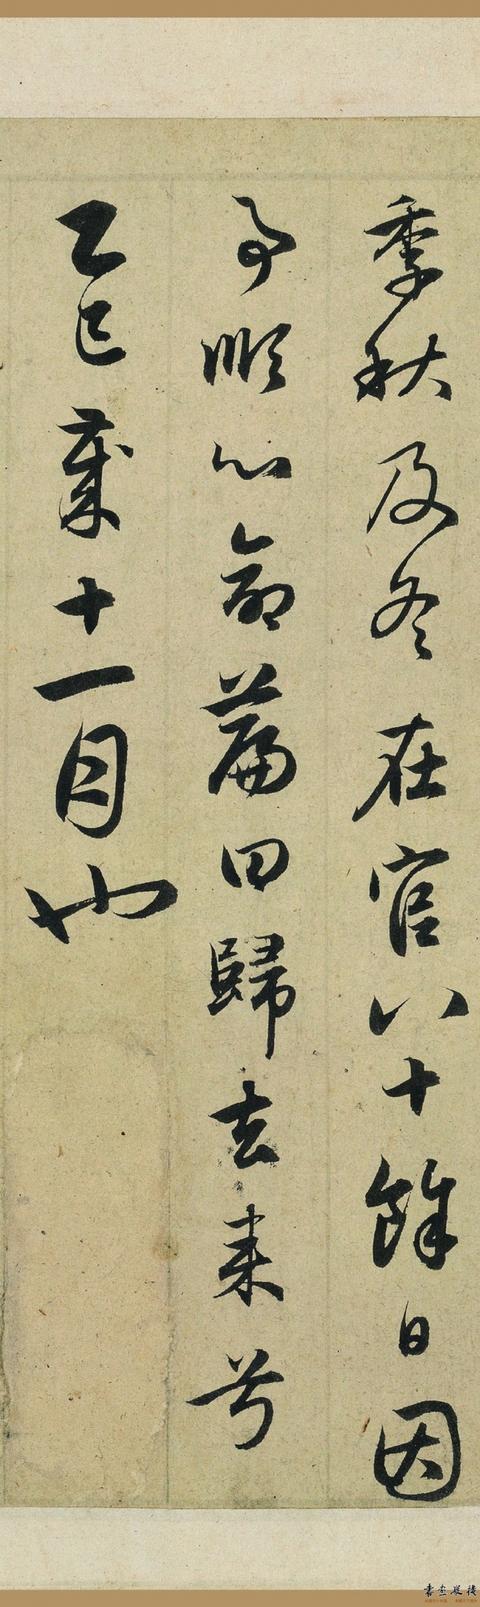 季秋及冬在官八十餘日因
事順心命篇曰歸去来兮
乙巳歲十一月也